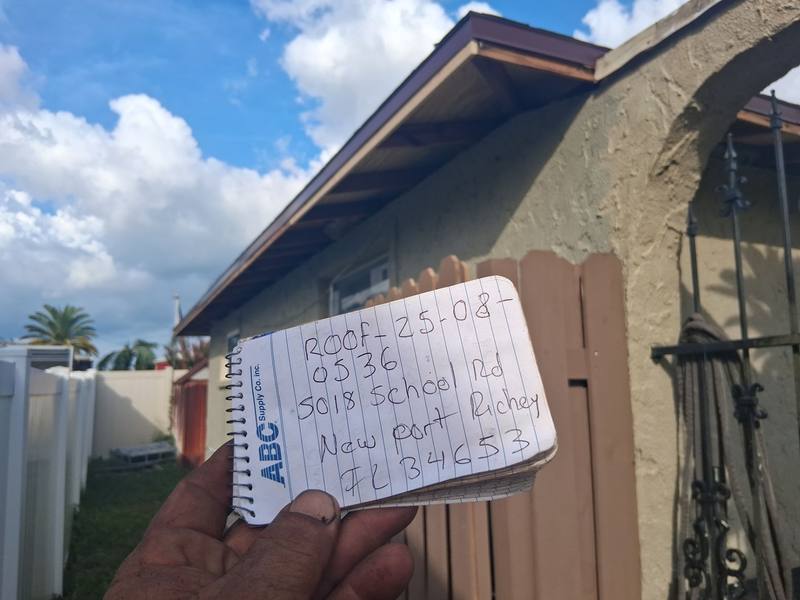 ROOF-25-08-
0536
5018 School Rd
New port Richey
FL 34653
ABC Supply Co. Inc.